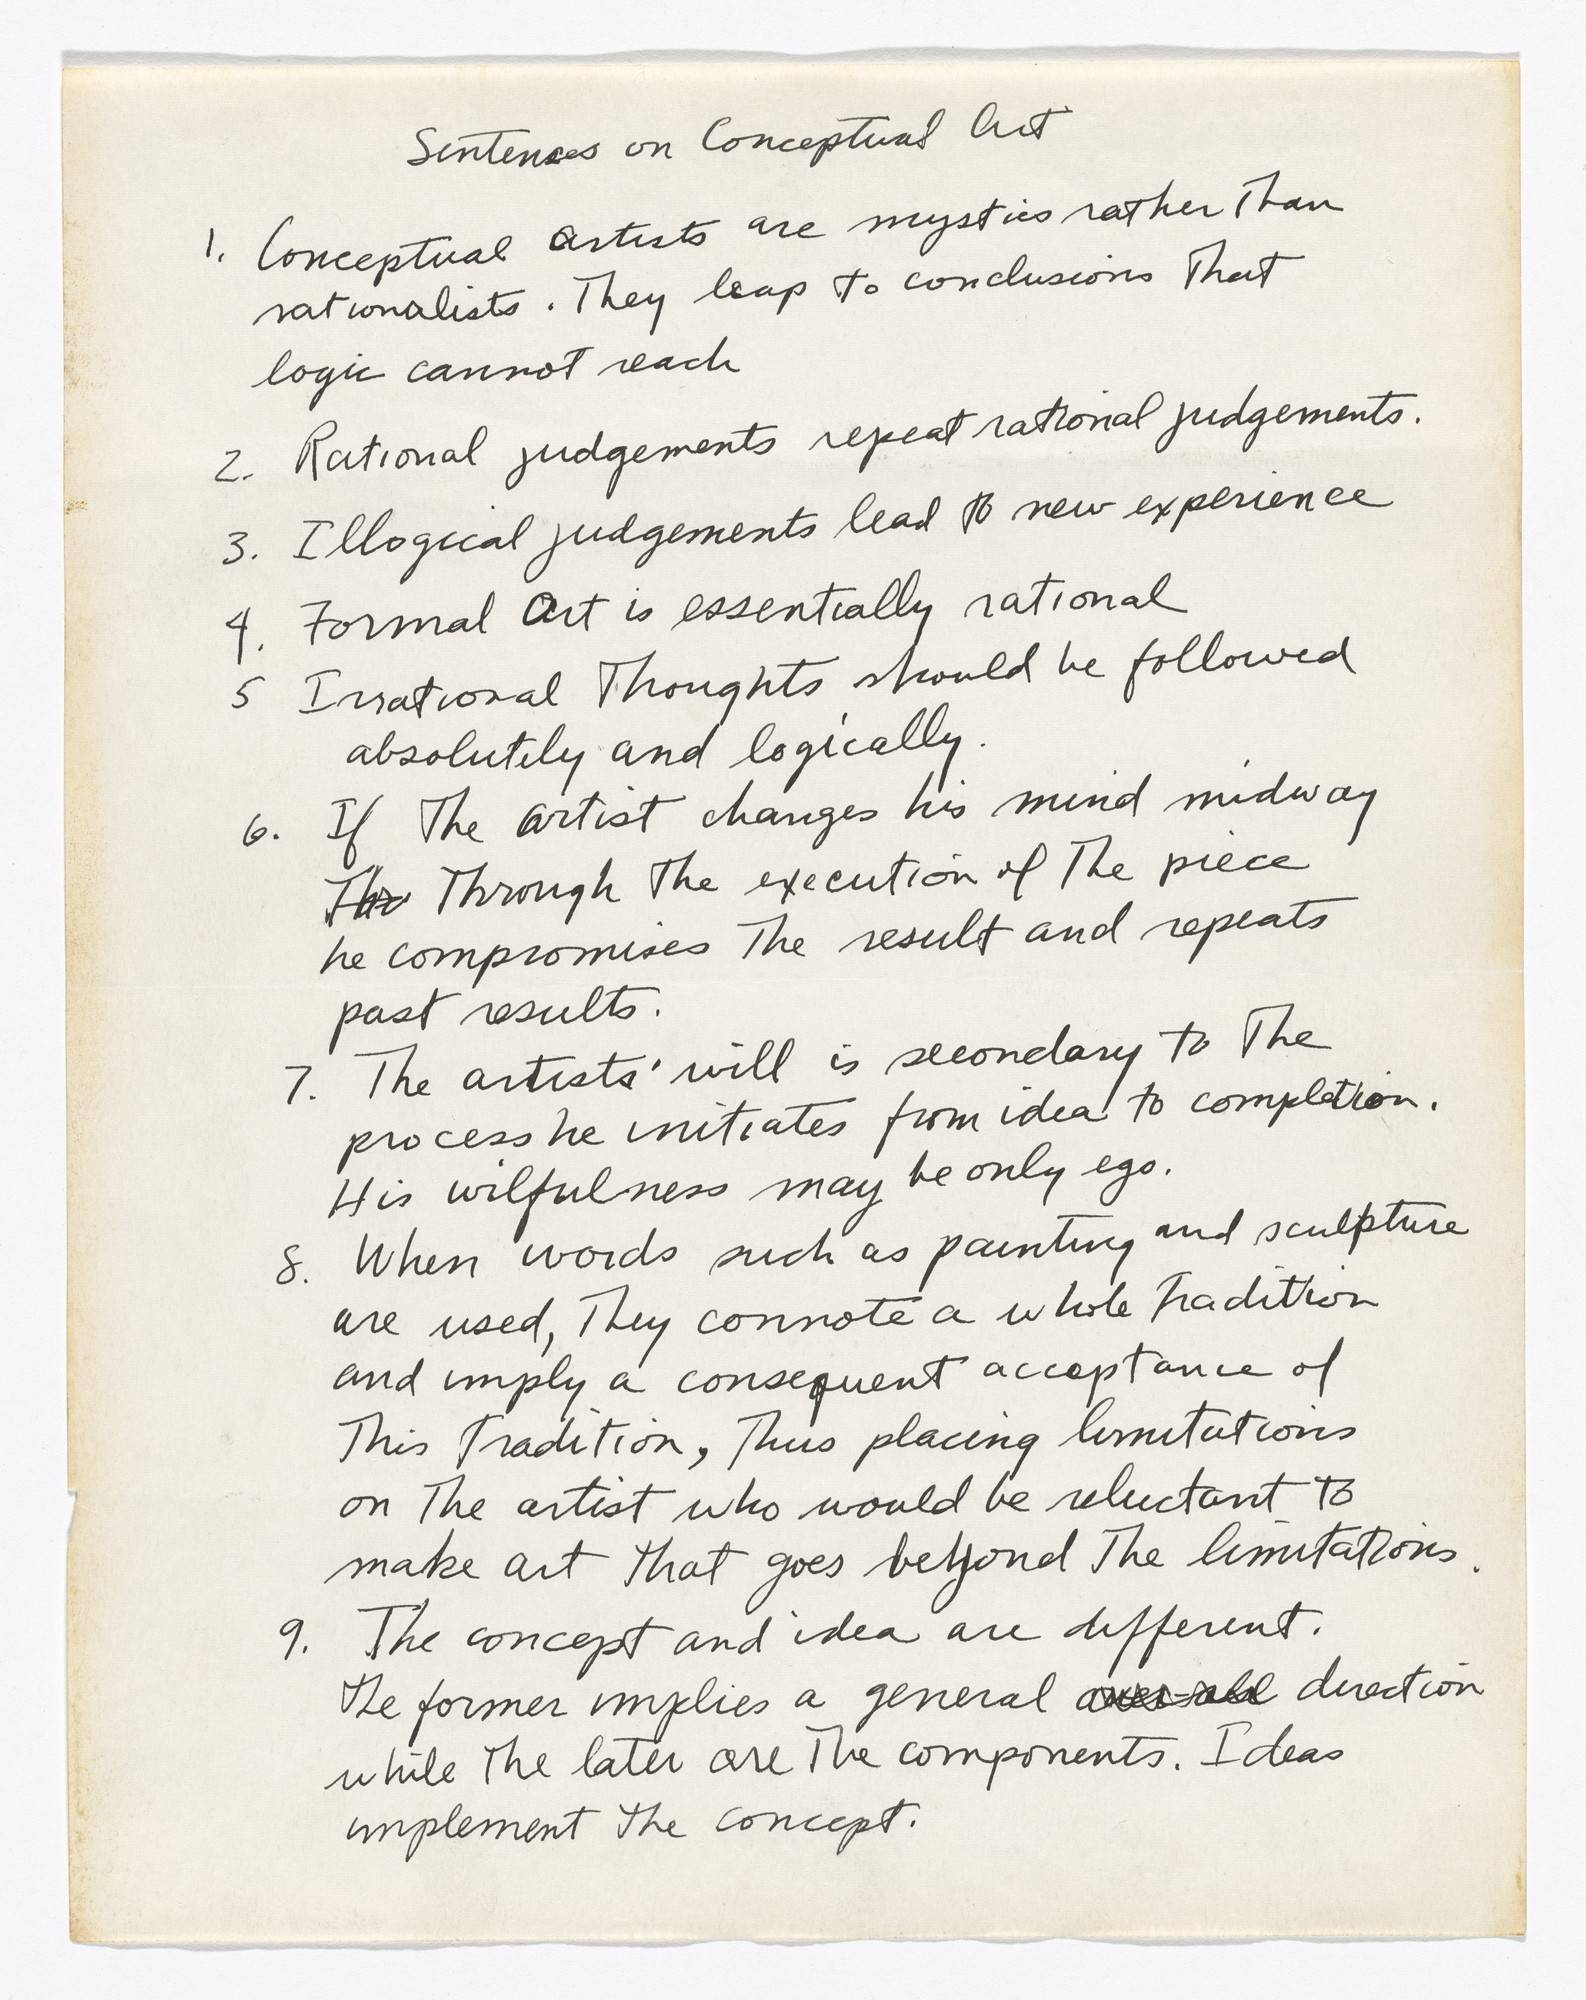 Sentences on Conceptual Art
1. Conceptual artists are mystics rather Than
rationalists. They leap to conclusions That
logic cannot reach
2. Rational judgements repeat rational judgements.
3. Illogical judgements lead to new experience
4. Formal art is essentially rational
5 Irrational Thoughts should be followed
absolutely and logically.
6. If The artist changes his mind midway
Thr Through The execution of The piece
he compromises The result and repeats
past results.
7. The artists' will is secondary to The
process he initiates from idea to completion.
His wilfulness may be only ego.
8. When words such as painting and sculpture
are used, They connote a whole Tradition
and imply a consequent acceptance of
This Tradition, Thus placing limitations
on The artist who would be reluctant to
make art that goes beyond The limitations.
9. The concept and idea are different.
The former implies a general over-all direction
while The later are The components. Ideas
implement the concept.